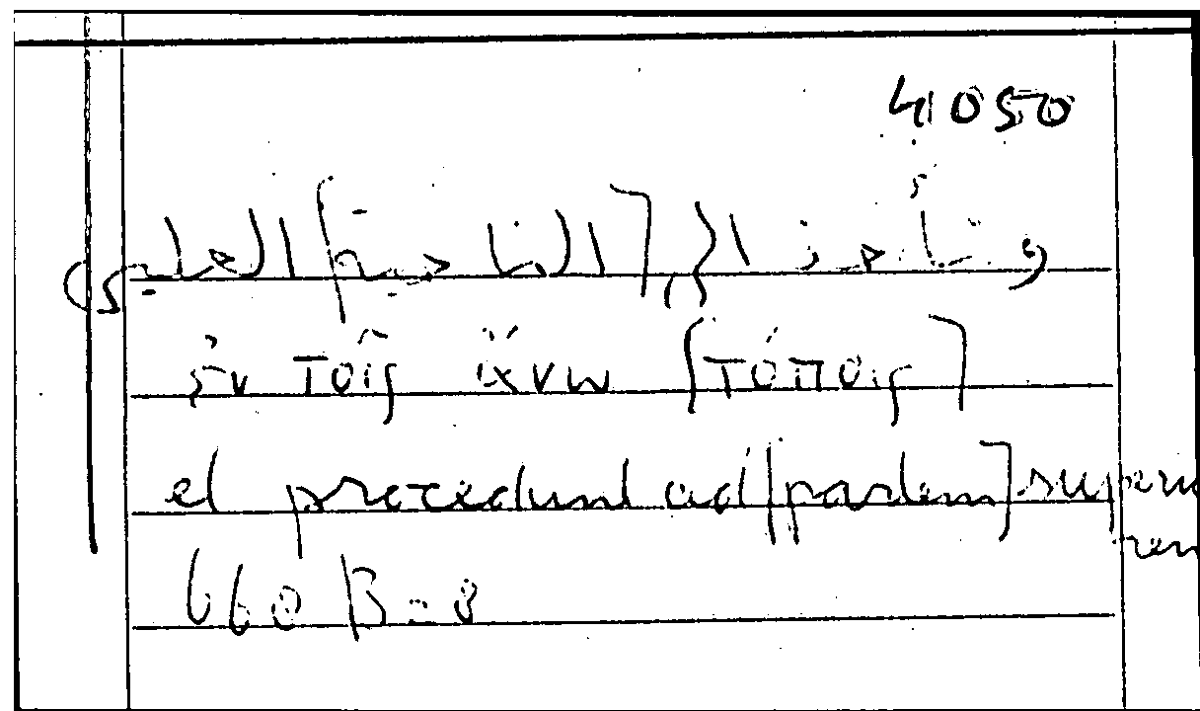 41050
وتأخذ إلى [الناحية] العليى
ἐν τοῖς ἄνω [τόποις]
et procedunt ad [partem] superio
rem
660 B = 8